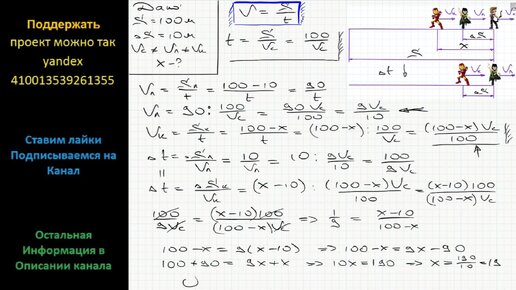 Поддержать
проект можно так
yandex
410013539261355
Ставим лайки
Подписываемся на
Канал
Остальная
Информация в
Описании канала
Дано
S = 100м
ΔS = 10м
x - ?
V = S/t
t = S/Vc = 100/Vc
ΔS
x
S
Δt
ΔS
Vл = Sл/t = (100-10)/t = 90/t
Vл = 90 : 100/Vc = 90Vc/100 = 9Vc/10
Vк = Sк/t = (100-x)/t = (100-x) : 100/Vc = (100-x)Vc/100
Δt = ΔS/Vл = 10/Vл = 10 : 9Vc/10 = 100/9Vc
Δt = ΔSк/Vк = (x-10) : (100-x)Vc/100 = (x-10)100/(100-x)Vc
100/9Vc = (x-10)100/(100-x)Vc => 1/9 = (x-10)/(100-x)
100-x = 9(x-10) => 100-x = 9x-90
100+90 = 9x+x => 10x=190 => x = 190/10 = 19